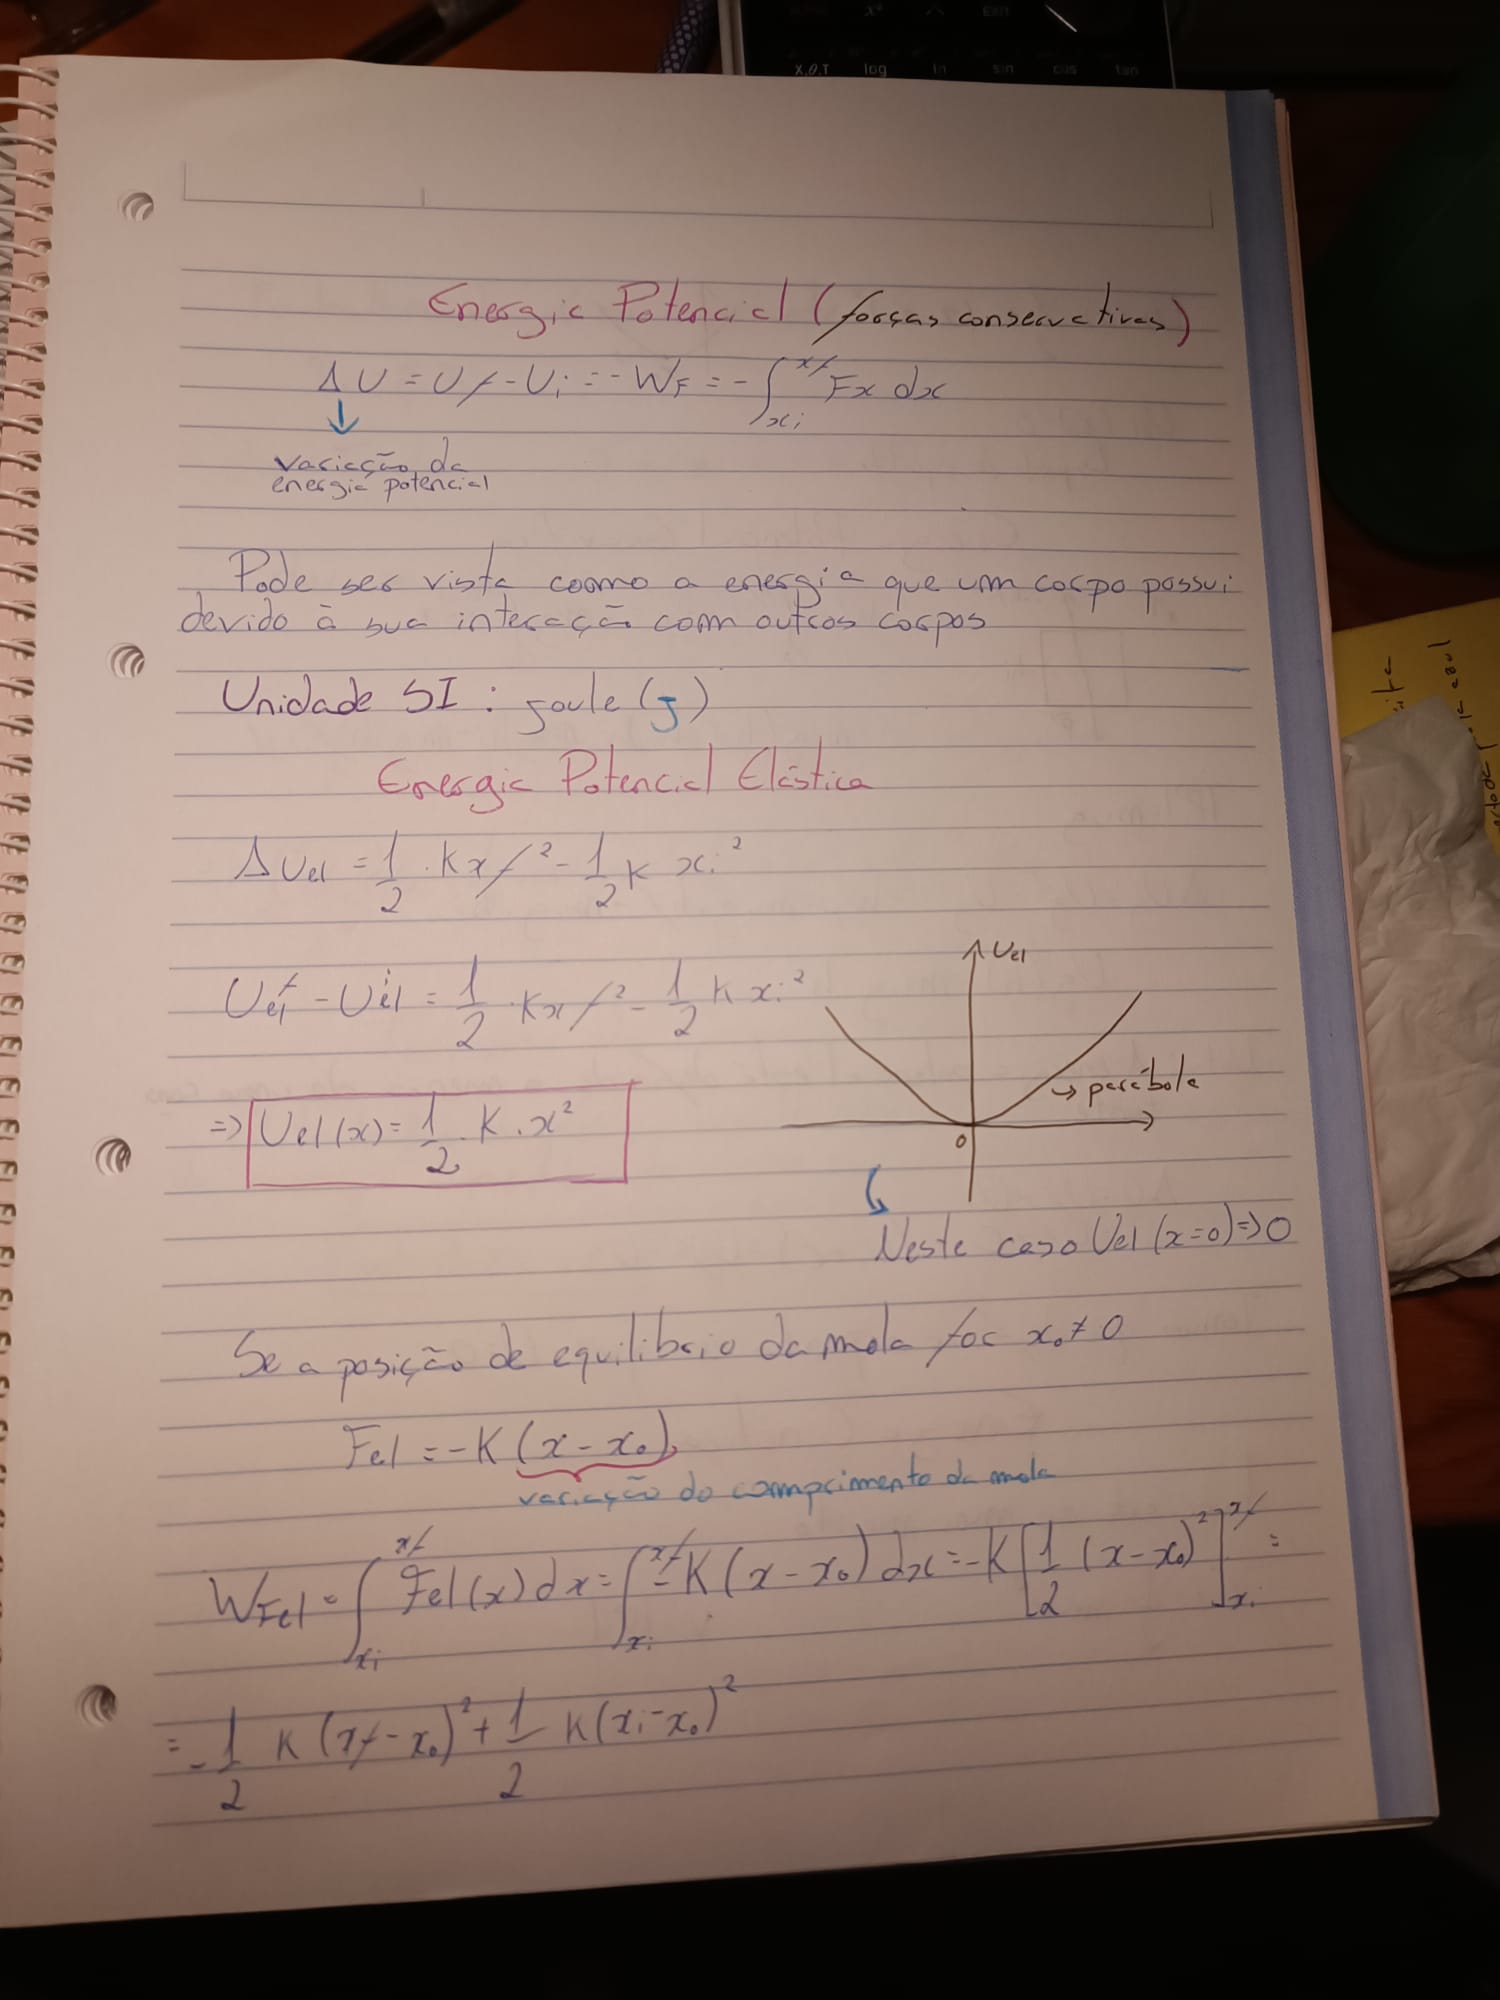 x² ^ EXIT
X,θ,T log ln sin cos tan
Energia Potencial (forças conservativas)
ΔU = Uf - Ui = - WF = - ∫xi^xf Fx dx
↓
variação da
energia potencial
Pode ser vista coomo a energia que um corpo possui
devido à sua interação com outros corpos
Unidade SI : joule (J)
Energia Potencial Elástica
ΔUel = 1/2 . K xf² - 1/2 K xi²
Uel^f - Uel^i = 1/2 . K xf² - 1/2 K xi²
Uel
→ parábola
0
=> Uel(x) = 1/2 . K . x²
Neste caso Uel (x=0) => 0
Se a posição de equilibrio da mola for x₀ ≠ 0
Fel = -K (x - x₀)
variação do comprimento da mola
WFel = ∫xi^xf Fel(x) dx = ∫xi^xf -K (x - x₀) dx = -K [1/2 (x - x₀)²]xi^xf =
= -1/2 K (xf - x₀)² + 1/2 K (xi - x₀)²